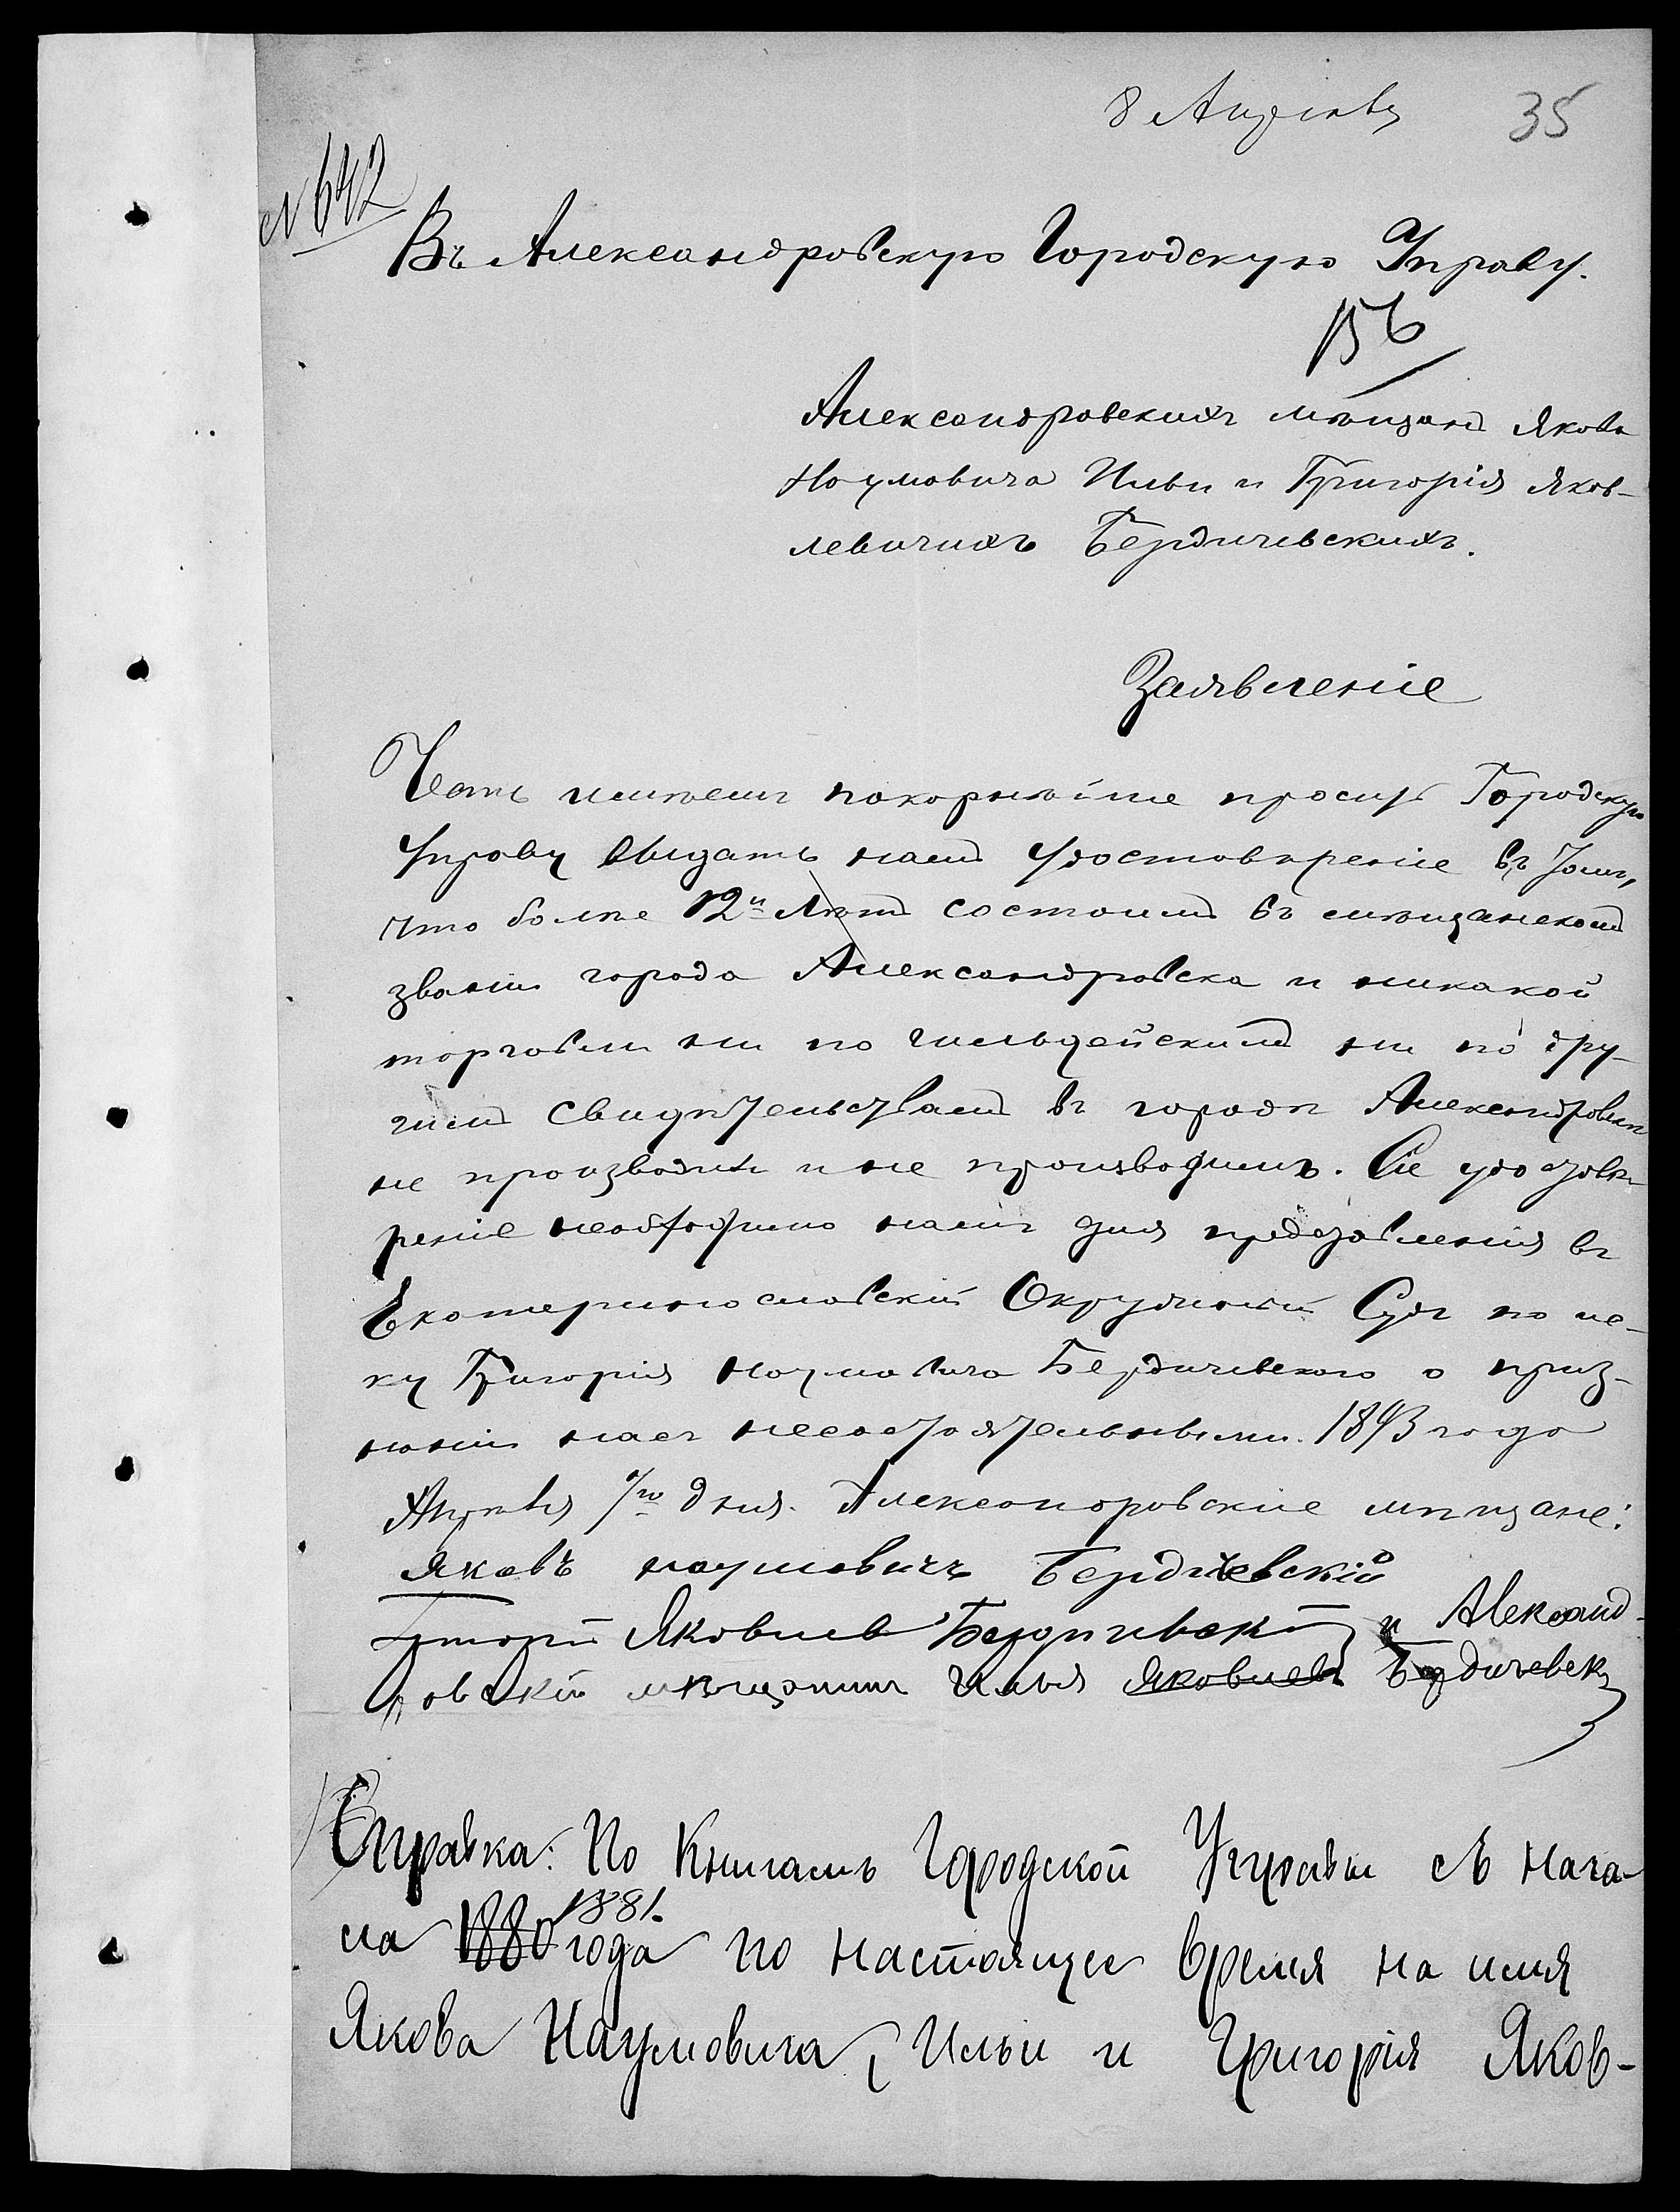 8 Апрѣля 35
№ 642
Въ Александровскую Городскую Управу.
156
Александровскихъ мѣщанъ Якова
Наумовича Ильи и Григорія Яков-
левичихъ Бердичевскихъ.
Заявленіе
Честь имѣемъ покорнѣйше просить Городскую
Управу выдать намъ удостовѣреніе въ томъ,
что болѣе 12и лѣтъ состоимъ въ мѣщанскомъ
званіи города Александровска и никакой
торговли ни по гильдейскимъ ни по дру-
гимъ свидѣтельствамъ въ городѣ Александровскѣ
не производили и не производимъ. Сіе удостовѣ-
реніе необходимо намъ для представленія въ
Екатеринославскій Окружный Судъ по ис-
ку Григорія Наумовича Бердичевскаго о приз-
наніи насъ несостоятельными. 1893 года
Апрѣля 7го дня. Александровскіе мѣщане:
Яковъ наумовичъ Бердичевскій
Яковлев Бердичевскій и Александ-
ровскій мѣщанинъ Илья Яковлев Бердичевскій
Справка: По книгамъ Городской Управы съ нача-
ла 1880 1881. года по настоящее время на имя
Якова Наумовича, Ильи и Григорія Яков-